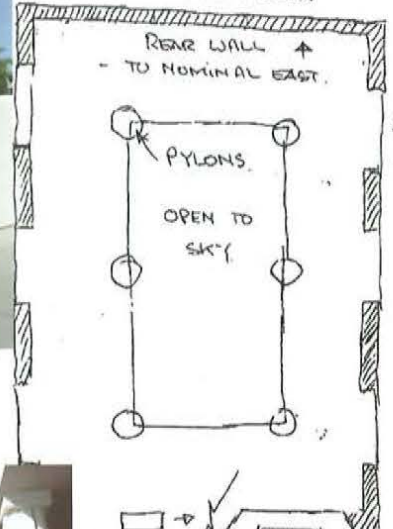 REAR WALL ↑
- TO NOMINAL EAST.
PYLONS.
OPEN TO
SKY